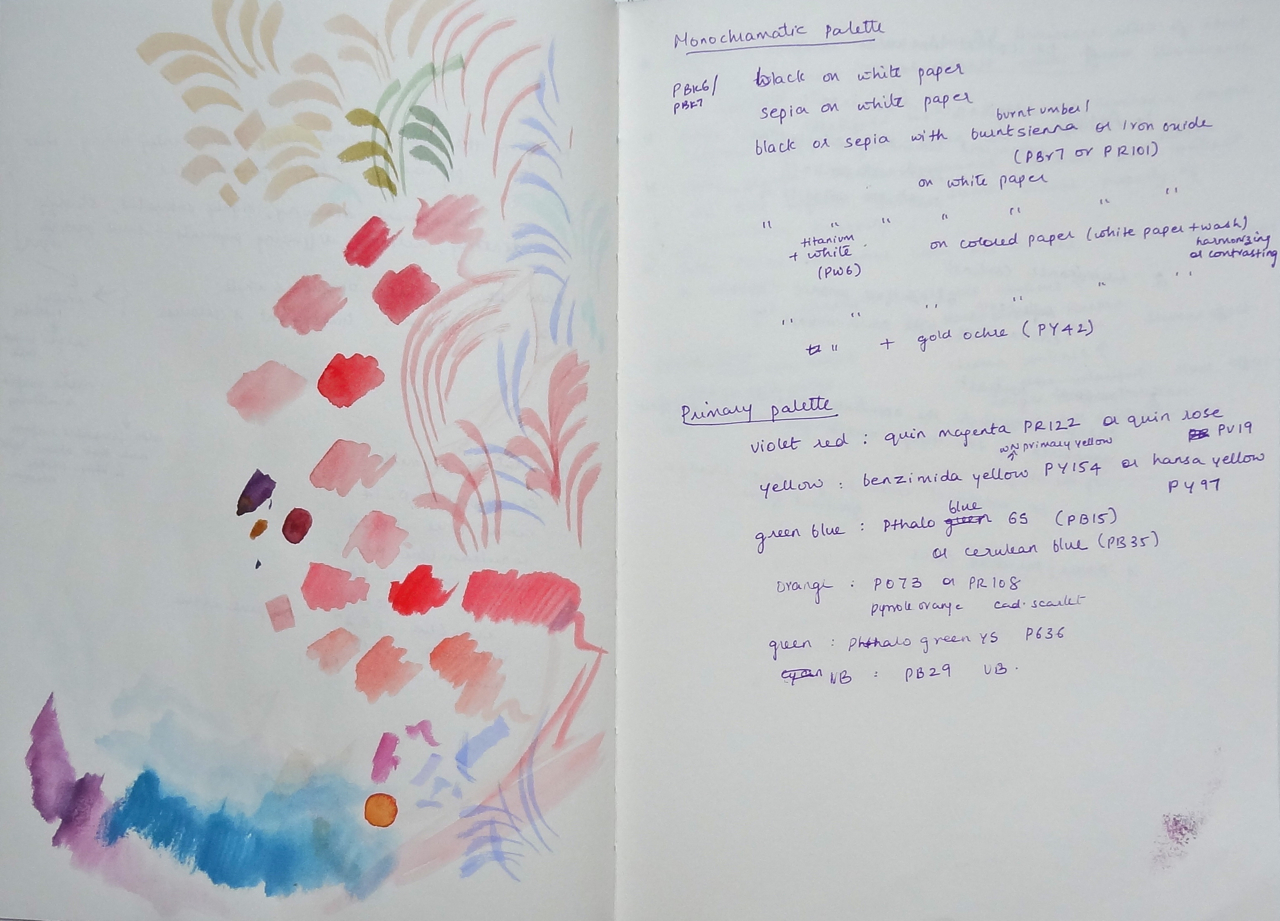 Monochramatic palette
PBk6/
PBk7
black on white paper
sepia on white paper
burnt umber/
black or sepia with burnt sienna or Iron oxide
(PBr7 or PR101)
on white paper
" " " " " " "
titanium
+ white
(PW6)
on colored paper (white paper + wash)
harmonizing
or contrasting
" " " " " "
" + gold ochre (PY42)
Primary palette
violet red : quin magenta PR122 or quin rose
PV19
WN primary yellow
yellow : benzimida yellow PY154 or hansa yellow
PY97
blue
green blue : Pthalo green GS (PB15)
or cerulean blue (PB35)
Orange : PO73 or PR108
pyrrole orange cad. scarlet
green : phthalo green YS PG36
cyan UB : PB29 UB.